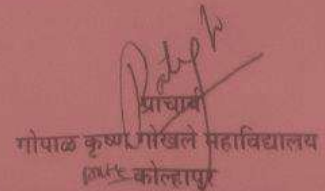 प्राचार्य
गोपाळ कृष्ण गोखले महाविद्यालय
कोल्हापूर